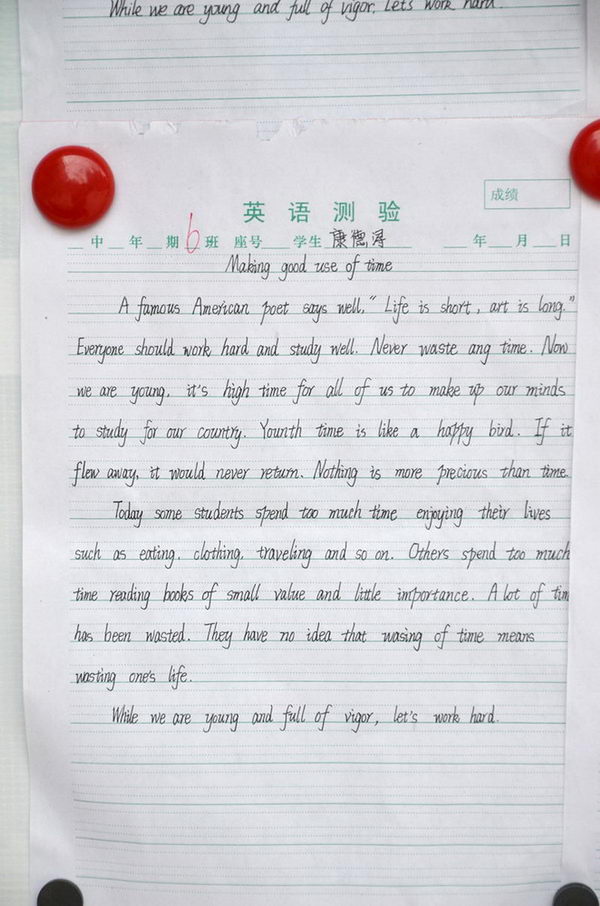 While we are young and full of vigor, Let's work hard.
成绩
英 语 测 验
中 年 期 6 班 座号 学生 康德浔 年 月 日
Making good use of time
A famous American poet says well. “Life is short, art is long.”
Everyone should work hard and study well. Never waste ang time. Now
we are young, it's high time for all of us to make up our minds
to study for our country. Younth time is like a happy bird. If it
flew away, it would never return. Nothing is more precious than time.
Today some students spend too much time enjoying their lives
such as eating, clothing, traveling and so on. Others spend too much
time reading books of small value and little importance. A lot of tim
has been wasted. They have no idea that wasing of time means
wasting one's life.
While we are young and full of vigor, let's work hard.